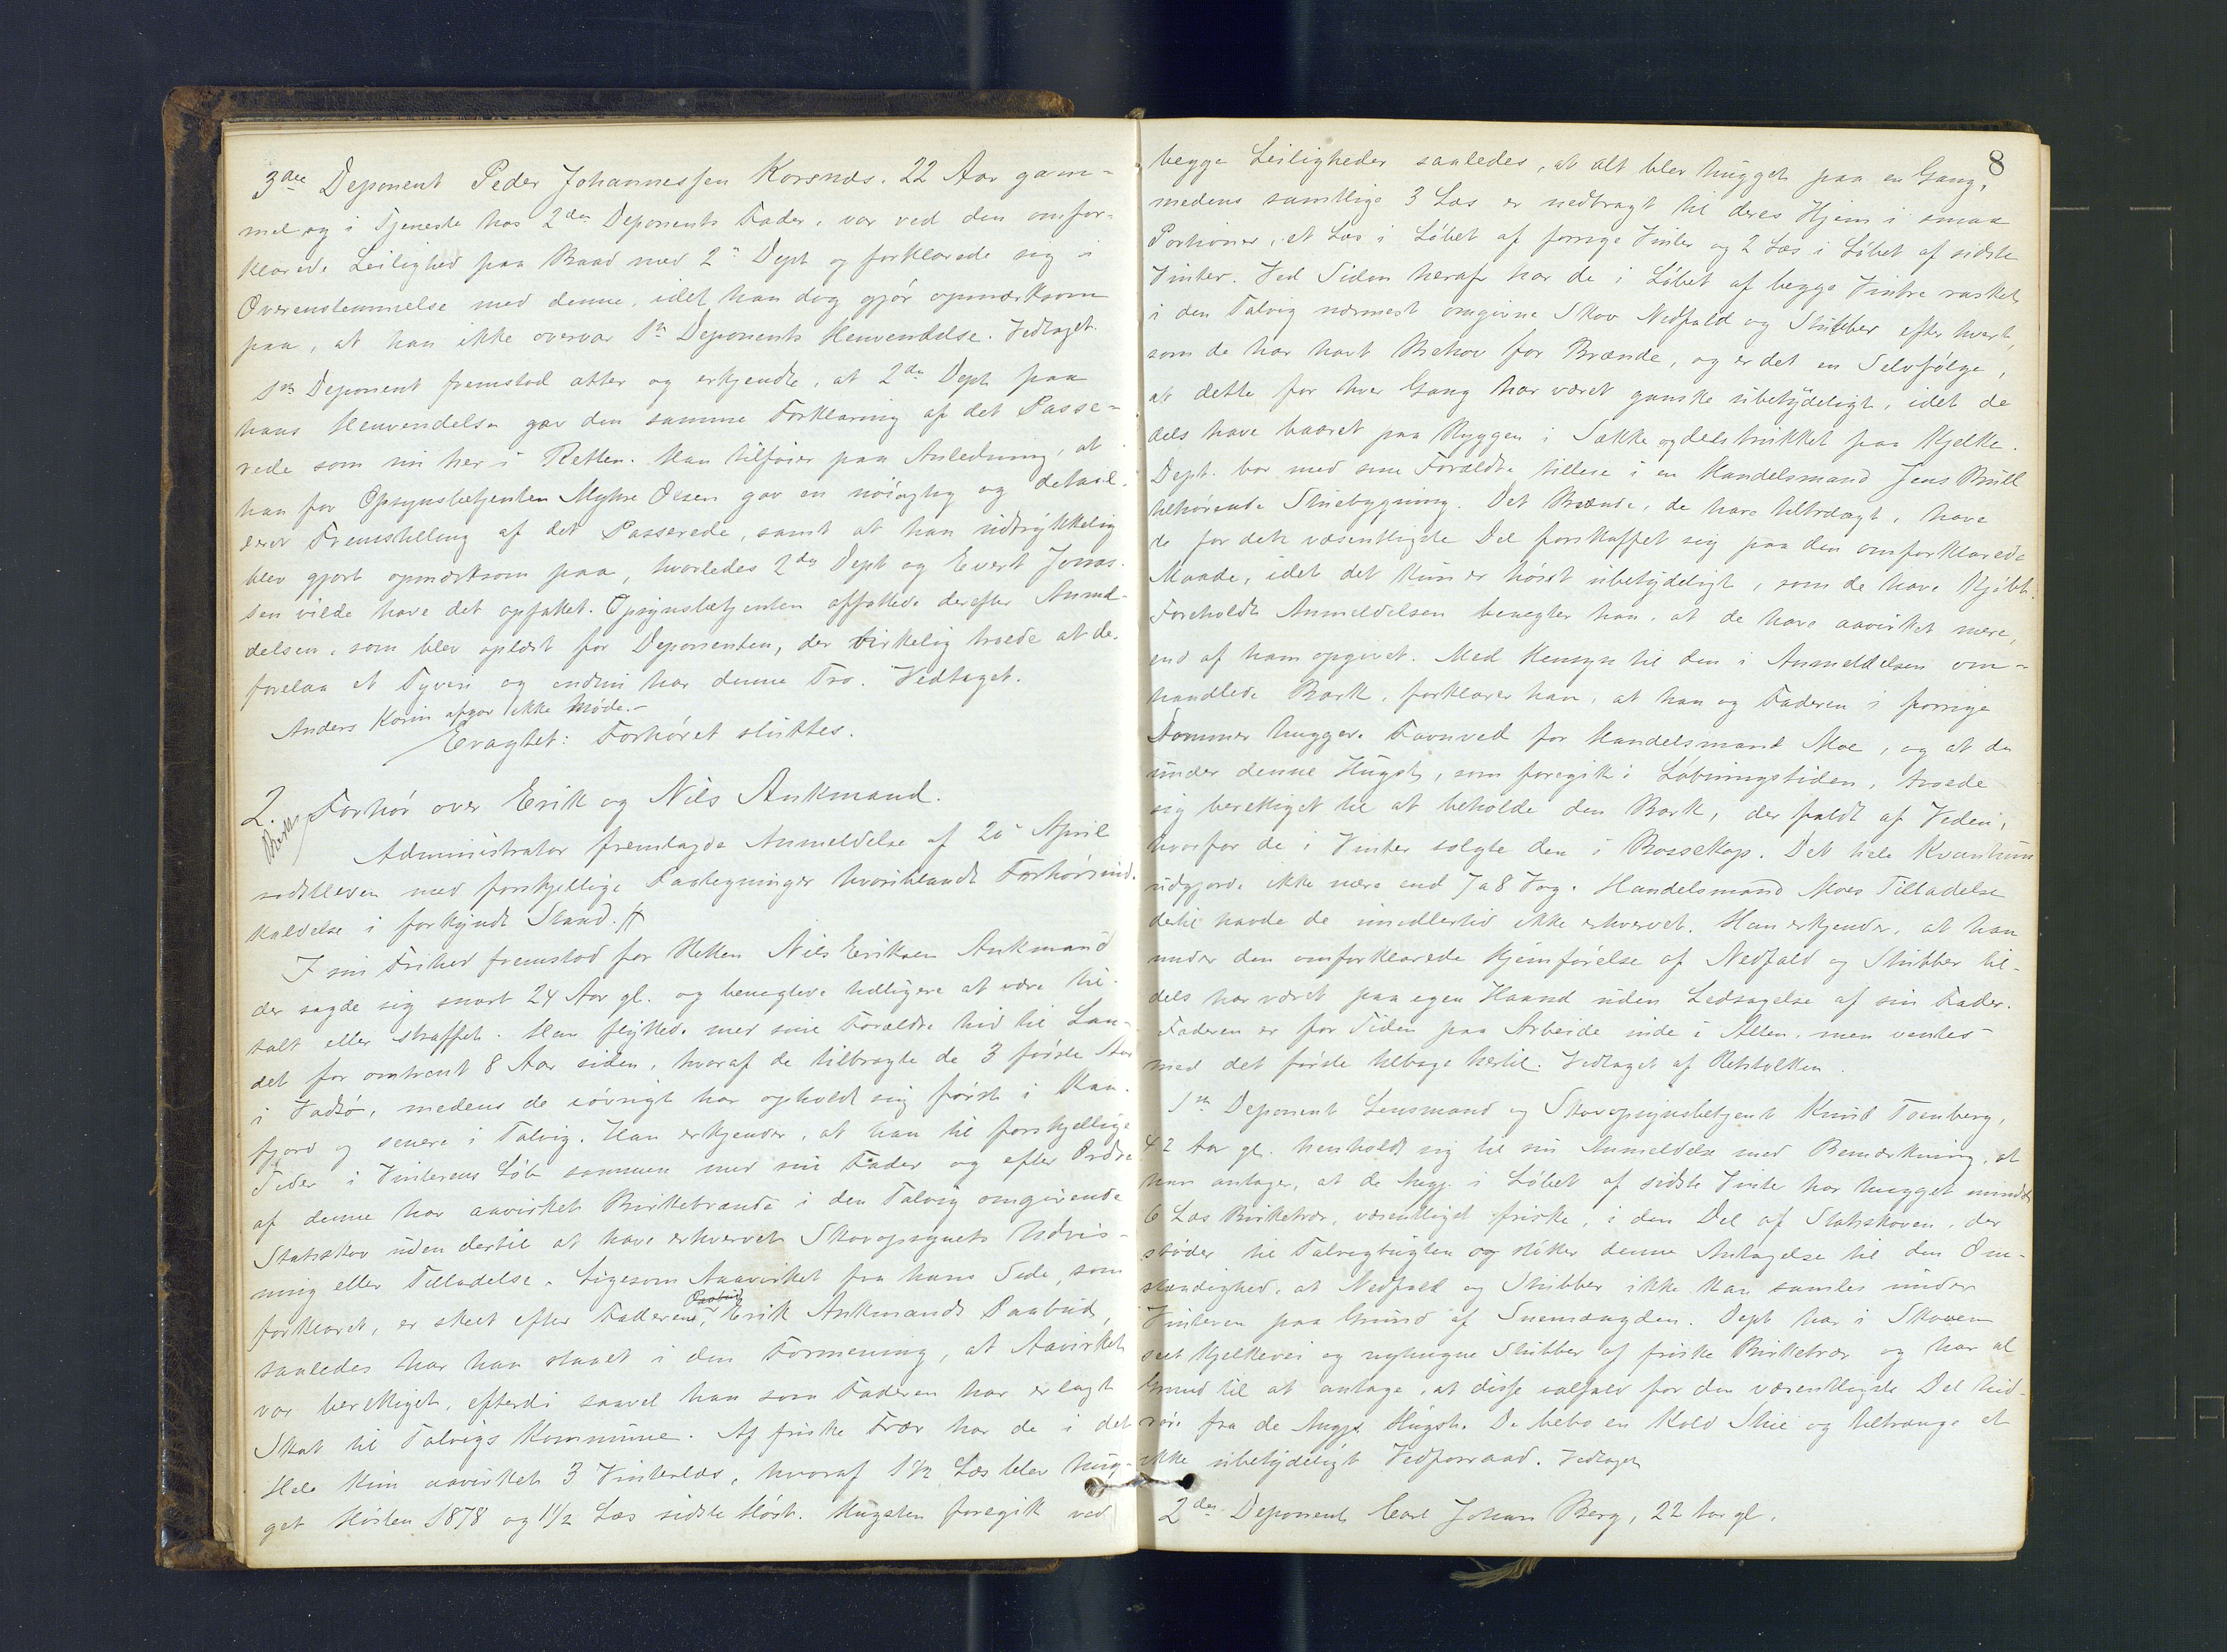 3die Deponent Peder Johannessen Korsnæs. 22 Aar gam-
mel og i Tjeneste hos 2den Deponents Fader, var ved den omfor-
klarede Leilighed paa Baad med 2n Dept og forklarede sig i
Overenstemmelse med denne, idet han dog gjør opmærksom
paa, at han ikke overvar 1ste Deponents Henvendelse. Vedtaget.
1ste Deponent fremstod atter og erkjendte, at 2den Dept paa
hans Henvendelse gav den samme Forklaring af det Passe-
rede som nu her i Retten. Han tilføier paa Anledning, at
han for Opsynsbetjenten Myhre Olsen gav en nöiagtig og detail-
leret Fremstilling af det Passerede, samt at han udtrykkelig
blev gjort opmærksom paa, hvorledes 2den Dept og Evert Jonas-
sen vilde have det opfattet. Opsynsbetjenten affattede derefter Anmel-
delsen, som blev oplæst for Deponenten, der virkelig troede at de.
forelaa et Tyveri og endnu har denne Tro. Vedtaget.
Anders Korin afgav ikke Møde.-
Eragtet: Forhøret sluttes.
2. Forhør over Erik og Nils Ankmand.
Administrator fremlagde Anmeldelse af 20de April
sidstleden med forskjellige Paategninger hvoriblandt Forhørsind-
kaldelse i forkyndt Stand.
I sin Frihed fremstod for Retten Nils Eriksen Ankmand
der sagde sig snart 24 Aar gl. og benegtede tidligere at være til-
talt eller straffet. Han flyttede med sine Forældre hid til Lan-
det for omtrent 8 Aar siden, hvoraf de tilbragte de 3 første Aar
i Vadsø, medens de iøvrigt har opholdt sig først i Kaa-
fjord og senere i Talvig. Han erkjender, at han til forskjellige
Tider i Vinterens Løb sammen med sin Fader og efter Ordre
af denne har aavirket Birkebrænde i den Talvig omgivende
Statsskov uden dertil at have erhvervet Skovopsynets Udvis-
ning eller Tilladelse. Ligesom Aavirket fra hans Side, som
forklaret, er skeet efter Faderens, Erik Ankmands Paabud,
saaledes har han staaet i den Formening, at Aavirket
var berettiget, efterdi saavel han som Faderen har erlagt
Skat til Talvigs Kommune. Af friske Trær har de i det
Hele kun aavirket 3 Vinterlæs, hvoraf 1½ Læs blev hug-
get Høsten 1878 og 1½ Læs sidste Høst. Hugsten foregik ved
8
begge Leiligheder saaledes, at alt blev hugget paa en Gang,
medens samtlige 3 Læs er nedbragt til deres Hjem i smaa
Portioner, et Læs i Løbet af forrige Vinter og 2 Læs i Løbet af sidste
Vinter. Ved Siden heraf har de i Løbet af begge Vintre rasket
i den Talvig nærmest omgivne Skov Nedfald og Stubber efter hvert,
som de har havt Behov for Brænde, og er det en Selvfølge,
at dette for hver Gang har været ganske ubetydeligt, idet de
dels have baaret paa Ryggen i Sække og dels trukket paa Kjelke.
Dept. bor med sine Forældre tillese i en Handelsmand Jens Bull
tilhørende Stuebygning. Det Brænde, de have tiltrængt, have
de for dets væsentligste Del forskaffet sig paa den omforklarede
Maade, idet det kun er høist ubetydeligt, som de have kjøbt.
Foreholdt Anmeldelsen benegter han, at de have aavirket mere,
end af ham opgivet. Med Hensyn til den i Anmeldelsen om-
handlede Bark, forklarer han, at han og Faderen i forrige
Sommer huggede Favnved for Handelsmand Moe, og at de
under denne Hugst, som foregik i Løbningstiden, troede
sig berettiget til at beholde den Bark, der faldt af Veden,
hvorfor de i Vinter solgte den i Bossekop. Det hele Kvantum
udgjorde ikke mere end 7 a 8 Vog. Handelsmand Moes Tilladelse
dertil havde de imidlertid ikke erhvervet. Han erkjender, at han
under den omforklarede Hjemførelse af Nedfald og Stubber til-
dels har været paa egen Haand uden Ledsagelse af sin Fader.
Faderen er for Tiden paa Arbeide inde i Alten, men ventes
med det første tilbage hertil. Vedtaget af Rettstolken.
1ste Deponent Lensmand og Skovopsynsbetjent Knud Tomberg,
42 Aar gl. henholdt sig til sin Anmeldelse med Bemærkning, at
han antager, at de Angj. i Løbet af sidste Vinter har hugget mindst
6 Læs Birketrær, væsentligst friske, i den Del af Statsskoven, der
støder til Talvigbugten og støtter denne Antagelse til den Om-
stændighed, at Nedfald og Stubber ikke kan samles under
Vinteren paa Grund af Snemængden. Dept har i Skoven
seet Kjelkevei og nyhugne Stubber af friske Birketrær og har al
Grund til at antage, at disse ialfald for den væsentligste Del hid-
røre fra de Angjs Hugst. De bebo en kold Stue og tiltrænge et
ikke ubetydeligt Vedforraad. Vedtaget
2den Deponent Carl Johan Berg, 22 Aar gl.